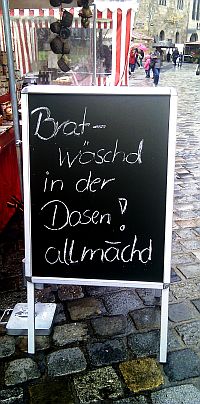 Brat-
wöschd
in der
Dosen!
allmächd